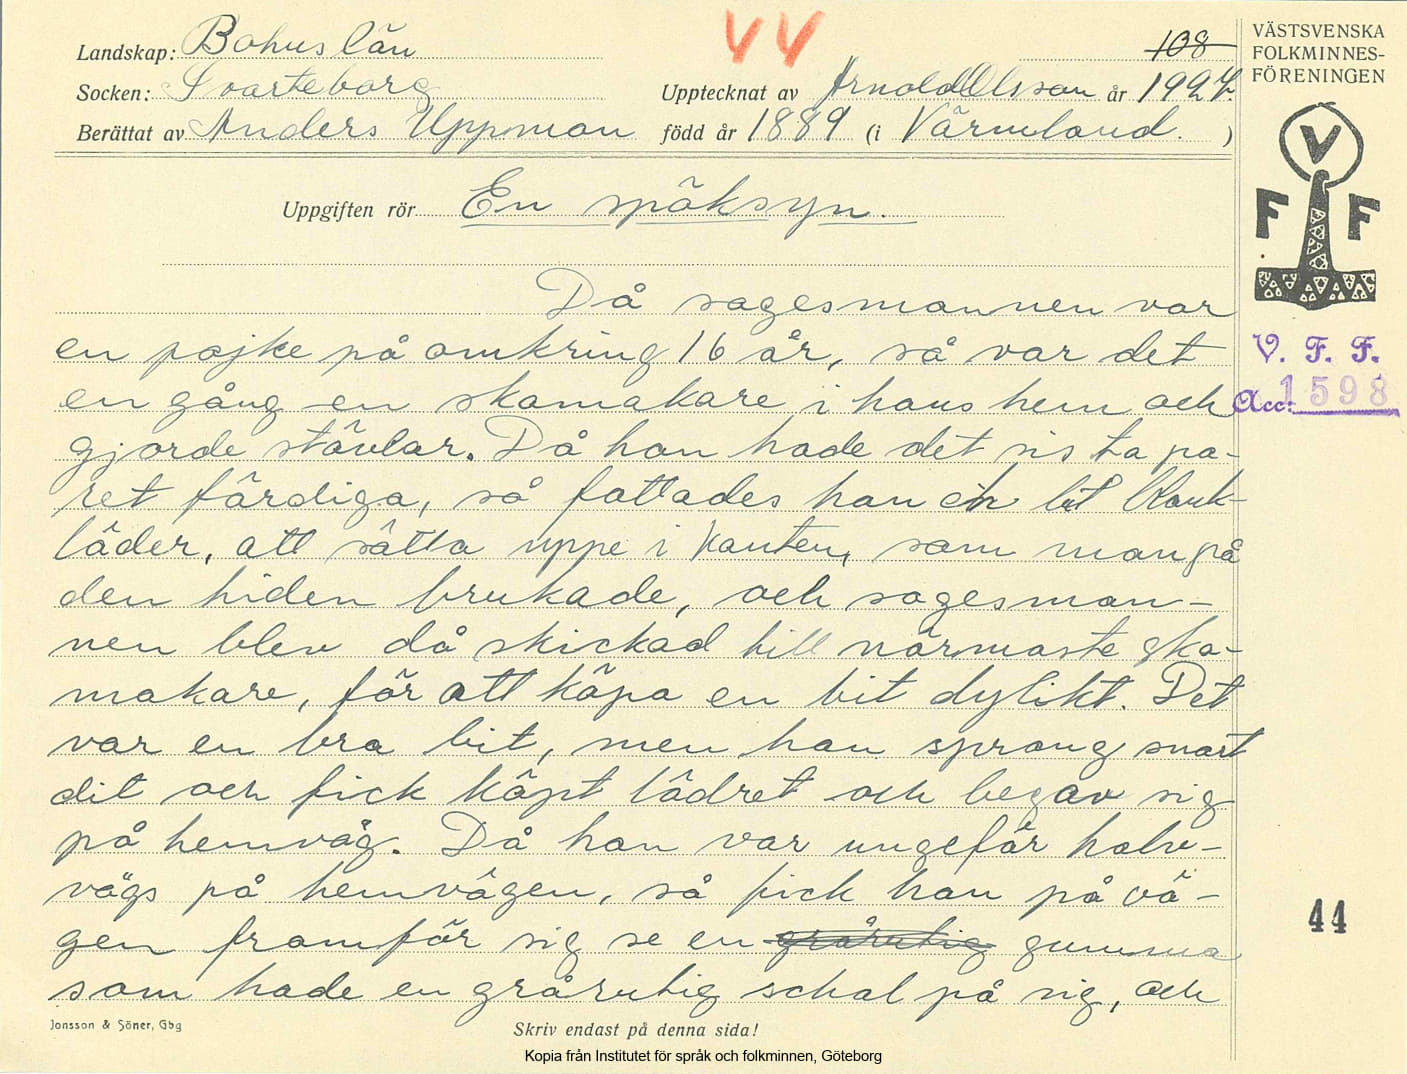 Landskap: Bohuslän
44
108
Socken: Svarteborg
Upptecknat av Arnold Olsson år 1927.
Berättat av Anders Uppman född år 1889 (i Värmland. )
VÄSTSVENSKA
FOLKMINNES-
FÖRENINGEN
V
F F
Uppgiften rör En spöksyn.
Då sagesmannen var
en pojke på omkring 16 år, så var det
en gång en skomakare i hans hem och
gjorde stövlar. Då han hade det sista pa-
ret färdiga, så fattades han en bit blank-
läder, att sätta uppe i kanten, som man på
den tiden brukade, och sagesman-
nen blev då skickad till närmaste sko-
makare, för att köpa en bit dylikt. Det
var en bra bit, men han sprang snart
dit och fick köpt lädret och begav sig
på hemväg. Då han var ungefär halv-
vägs på hemvägen, så fick han på vä-
gen framför sig se en grårutig gumma
som hade en grårutig schal på sig, och
V. F. F.
Acc: 1598
44
Jonsson & Söner, Gbg
Skriv endast på denna sida!
Kopia från Institutet för språk och folkminnen, Göteborg